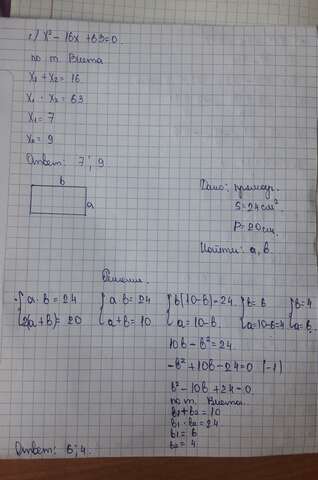 1) x² - 16x + 63 = 0.
по т. Виета
x₁ + x₂ = 16
x₁ · x₂ = 63
x₁ = 7
x₂ = 9
Ответ: 7; 9
b
a
Дано: прямоуг.
S = 24 см².
P = 20 см.
Найти: a, b.
Решение.
{a · b = 24 {a · b = 24 {b(10-b) = 24. {b = 6 {b = 4
{2(a + b) = 20 {a + b = 10 {a = 10 - b. {a = 10 - 6 = 4 {a = 6.
10b - b² = 24.
-b² + 10b - 24 = 0 |(-1)
b² - 10b + 24 = 0.
по т. Виета.
b₁ + b₂ = 10
b₁ · b₂ = 24
b₁ = 6
b₂ = 4.
Ответ: 6; 4.